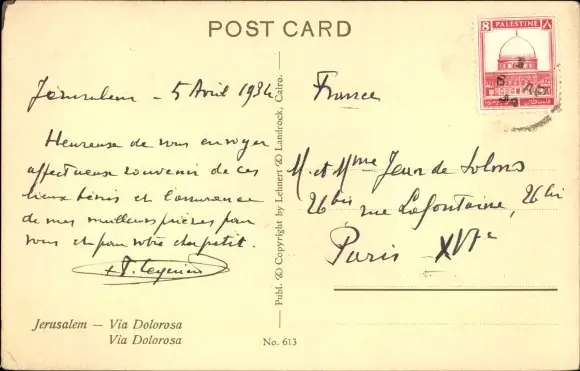 POST CARD
8 PALESTINE ٨
Jérusalem - 5 Avril 1934
Heureuse de vous envoyer
affectueux souvenir de ces
lieux bénis et l'assurance
de mes meilleures prières pour
vous et pour votre cher petit.
France
M. et Mme Jean de Solms
26bis rue Lafontaine, 26bis
Paris XVIe
Publ. & Copyright by Lehnert & Landrock, Cairo.
Jerusalem — Via Dolorosa
Via Dolorosa
No. 613